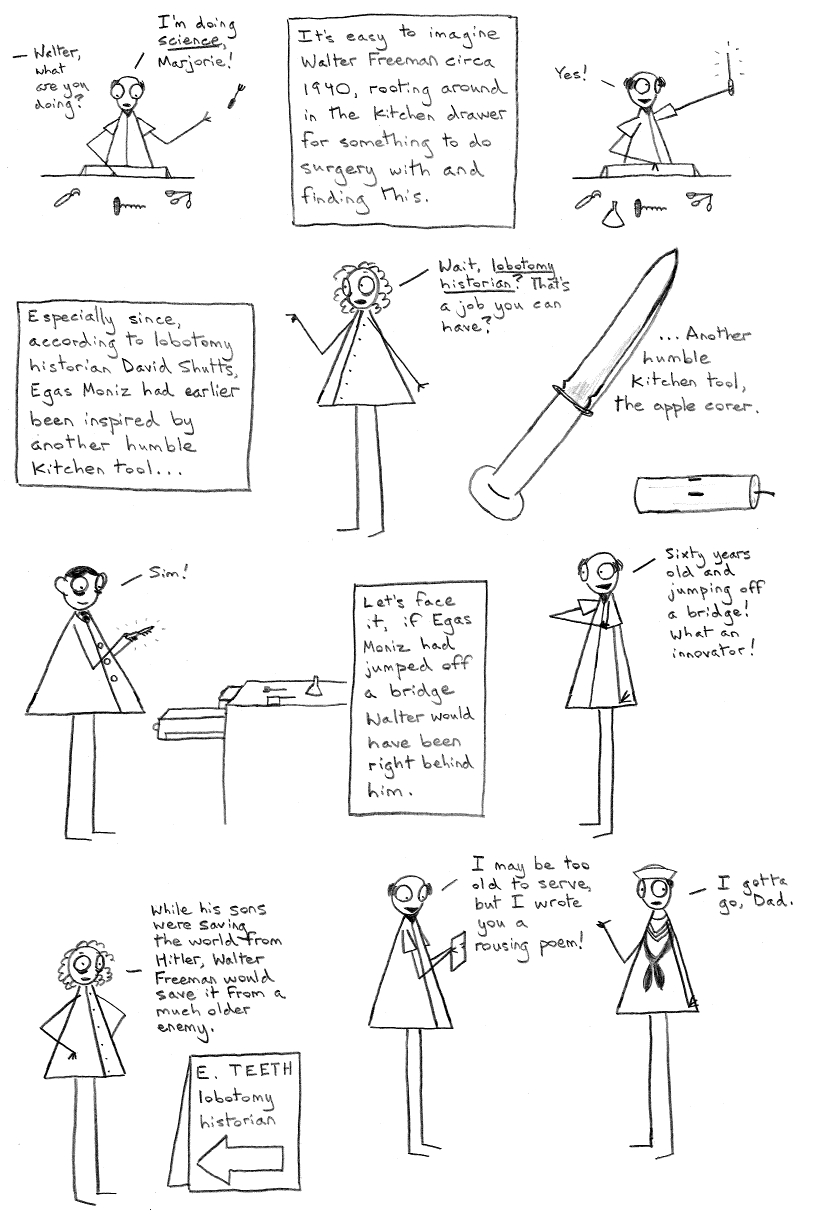 Walter,
what
are you
doing?
I'm doing
science,
Marjorie!
It's easy to imagine
Walter Freeman circa
1940, rooting around
in the kitchen drawer
for something to do
surgery with and
finding this.
Yes!
Especially since,
according to lobotomy
historian David Shutts,
Egas Moniz had earlier
been inspired by
another humble
kitchen tool...
Wait, lobotomy
historian? That's
a job you can
have?
...Another
humble
kitchen tool,
the apple corer.
Sim!
Let's face
it, if Egas
Moniz had
jumped off
a bridge
Walter would
have been
right behind
him.
Sixty years
old and
jumping off
a bridge!
What an
innovator!
While his sons
were saving
the world from
Hitler, Walter
Freeman would
save it from a
much older
enemy.
E. TEETH
lobotomy
historian
I may be too
old to serve,
but I wrote
you a
rousing poem!
I gotta
go, Dad.